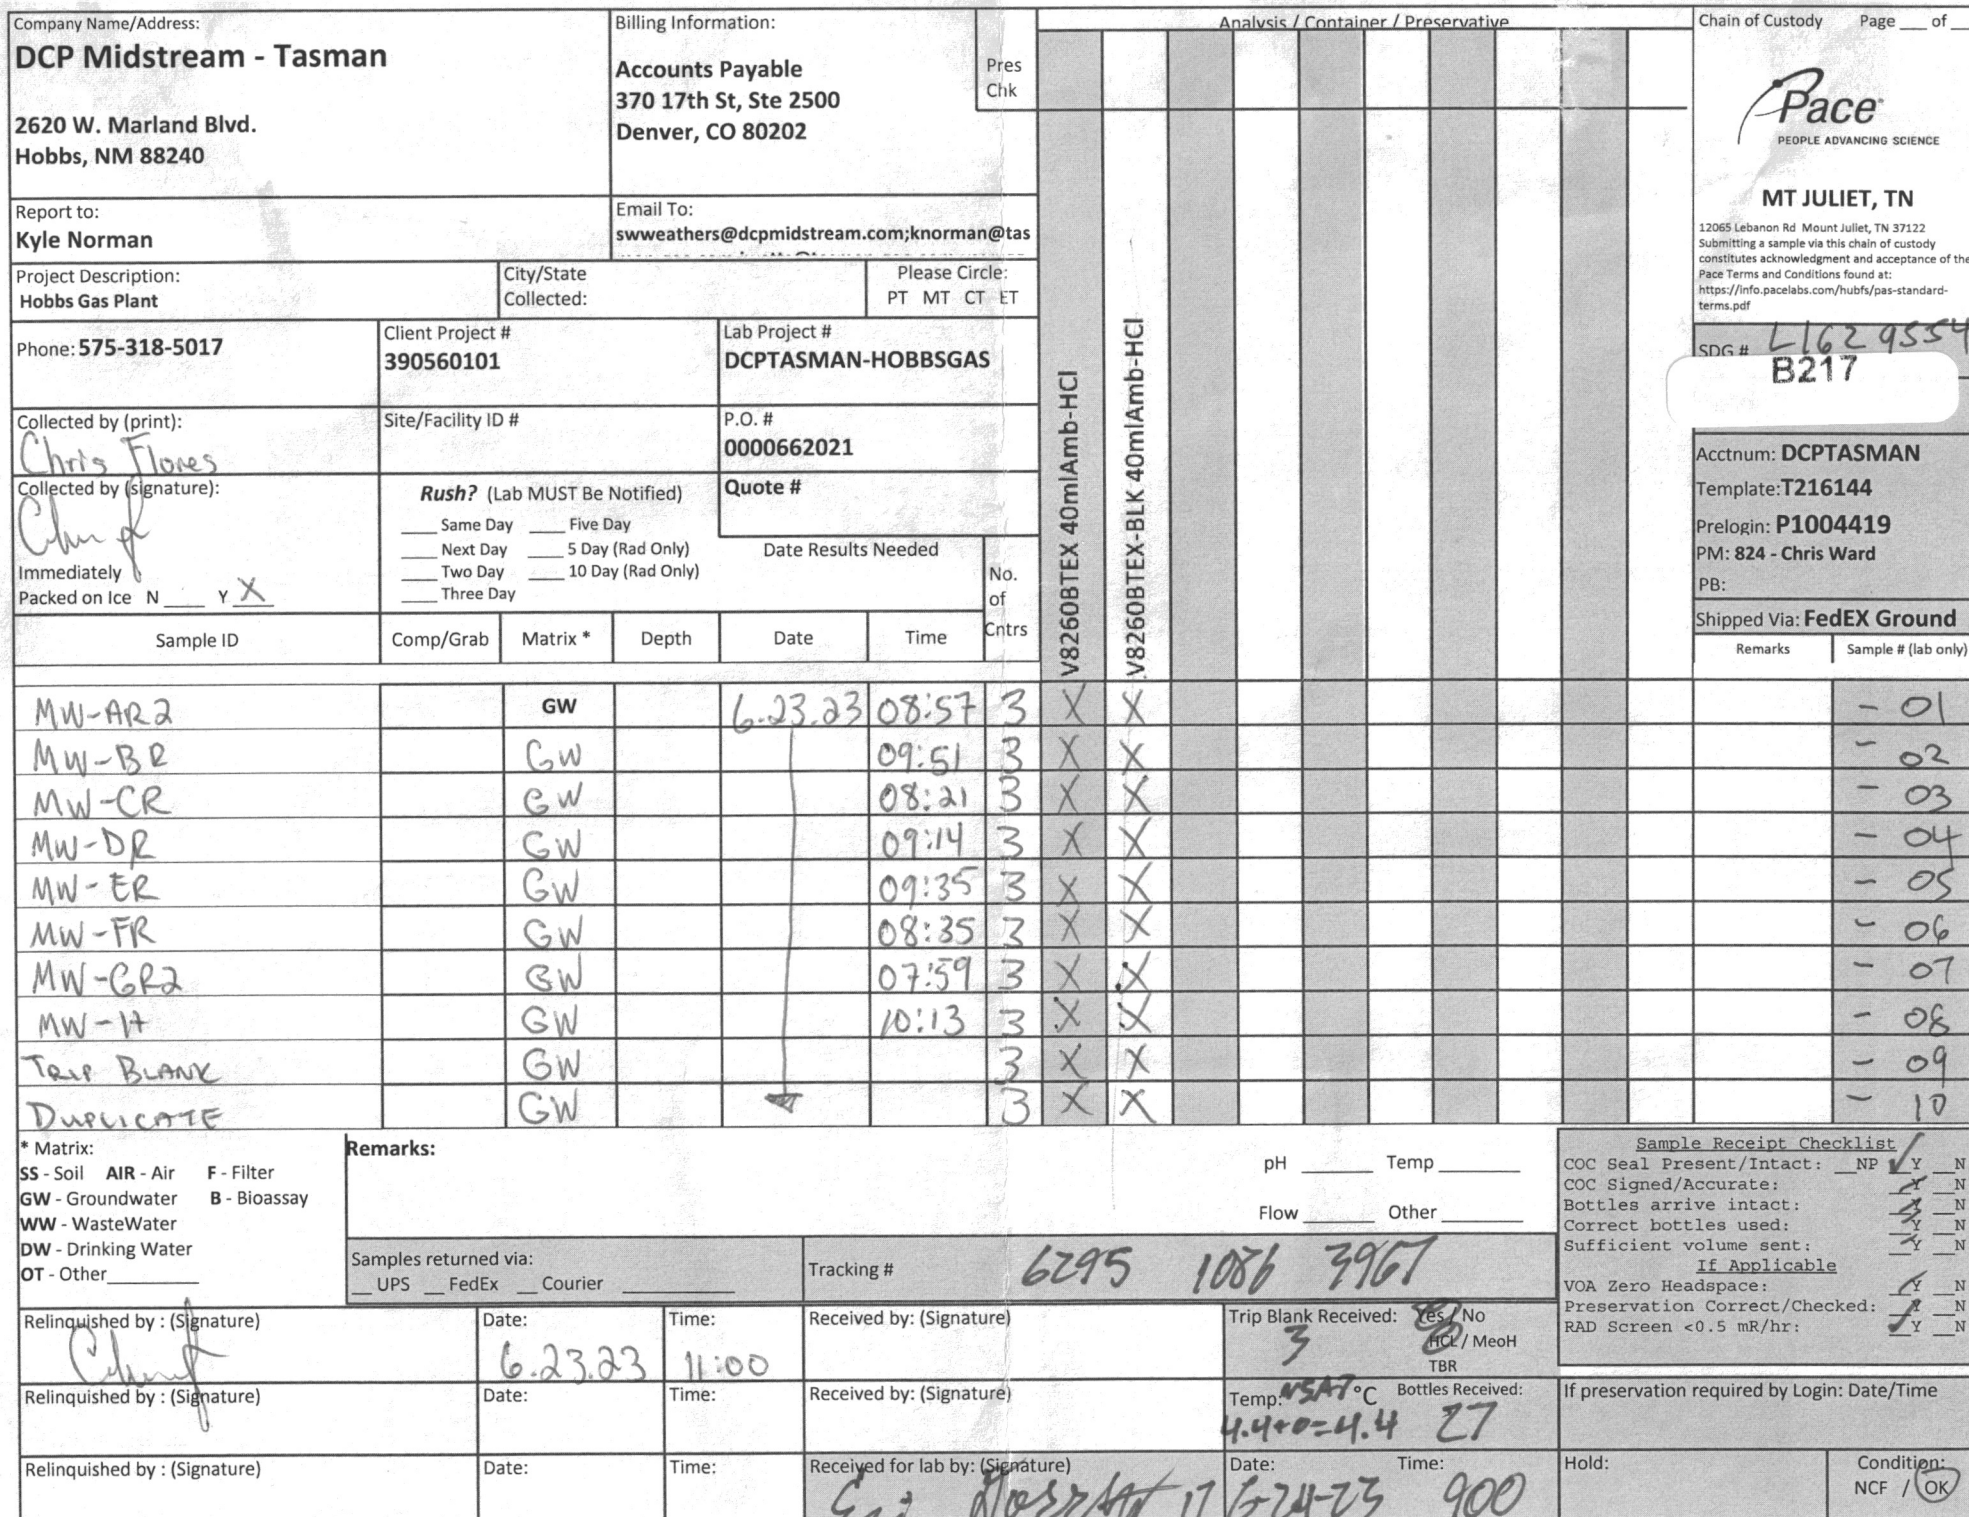 Company Name/Address:
DCP Midstream - Tasman
2620 W. Marland Blvd.
Hobbs, NM 88240
Billing Information:
Accounts Payable
370 17th St, Ste 2500
Denver, CO 80202
Pres
Chk
Analysis / Container / Preservative
Chain of Custody Page ___ of ___
Pace
PEOPLE ADVANCING SCIENCE
MT JULIET, TN
12065 Lebanon Rd Mount Juliet, TN 37122
Submitting a sample via this chain of custody
constitutes acknowledgment and acceptance of the
Pace Terms and Conditions found at:
https://info.pacelabs.com/hubfs/pas-standard-
terms.pdf
Report to:
Kyle Norman
Email To:
swweathers@dcpmidstream.com;knorman@tas
Project Description:
Hobbs Gas Plant
City/State
Collected:
Please Circle:
PT MT CT ET
Phone: 575-318-5017
Client Project #
390560101
Lab Project #
DCPTASMAN-HOBBSGAS
SDG # L1629554
B217
Collected by (print):
Chris Flores
Site/Facility ID #
P.O. #
0000662021
Acctnum: DCPTASMAN
Template:T216144
Prelogin: P1004419
PM: 824 - Chris Ward
PB:
Shipped Via: FedEX Ground
Collected by (signature):
Immediately
Packed on Ice N ___ Y X
Rush? (Lab MUST Be Notified)
___ Same Day ___ Five Day
___ Next Day ___ 5 Day (Rad Only)
___ Two Day ___ 10 Day (Rad Only)
___ Three Day
Quote #
Date Results Needed
No.
of
Cntrs
V8260BTEX 40mlAmb-HCl
V8260BTEX-BLK 40mlAmb-HCl
Sample ID Comp/Grab Matrix * Depth Date Time Remarks Sample # (lab only)
MW-AR2 GW 6.23.23 08:57 3 X X - 01
MW-BR GW 09:51 3 X X - 02
MW-CR GW 08:21 3 X X - 03
MW-DR GW 09:14 3 X X - 04
MW-ER GW 09:35 3 X X - 05
MW-FR GW 08:35 3 X X - 06
MW-GR2 GW 07:59 3 X X - 07
MW-17 GW 10:13 3 X X - 08
TRIP BLANK GW 3 X X - 09
DUPLICATE GW 3 X X - 10
* Matrix:
SS - Soil AIR - Air F - Filter
GW - Groundwater B - Bioassay
WW - WasteWater
DW - Drinking Water
OT - Other___
Remarks:
pH ___ Temp ___
Flow ___ Other ___
Samples returned via:
__ UPS __ FedEx __ Courier ___
Tracking # 6295 1086 3967
Sample Receipt Checklist
COC Seal Present/Intact: __NP ✓Y __N
COC Signed/Accurate: ✓Y __N
Bottles arrive intact: ✓Y __N
Correct bottles used: ✓Y __N
Sufficient volume sent: ✓Y __N
If Applicable
VOA Zero Headspace: ✓Y __N
Preservation Correct/Checked: ✓Y __N
RAD Screen <0.5 mR/hr: ✓Y __N
Relinquished by : (Signature)
Date:
6.23.23
Time:
11:00
Received by: (Signature)
Trip Blank Received: Yes / No
3 HCL / MeoH
TBR
Relinquished by : (Signature)
Date:
Time:
Received by: (Signature)
Temp: NSA7 °C
4.4+0=4.4
Bottles Received:
27
If preservation required by Login: Date/Time
Relinquished by : (Signature)
Date:
Time:
Received for lab by: (Signature)
Date:
6-24-23
Time:
900
Hold:
Condition:
NCF / OK